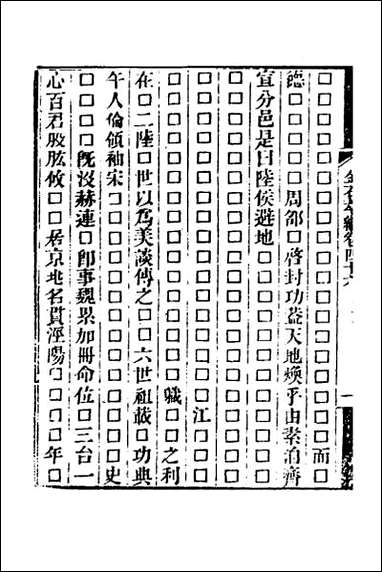 金石萃編卷四十六 一
□□□□□□□□□□□□□□□□□□而□□
德□□□□□周邵□啓封功蓋天地煥乎由素洎齊
宣分邑是曰陸侯避地□□□□□□□□□□□□
□□□□□□□□□□□□□□□□□□□□□
□□□□□□□□□□□□□□□□□江□□□
□□□□□□□□□□□□□□□□職□□之利
在□二陸□世以爲美談傳之□□六世祖載□功典
午人倫領袖宋□□□□□□□□□□□□□□史
□□□□既沒赫連□卽事魏累加冊命位□三台一
心百君股肱攸□□居京地名貫涇陽□□□□年□